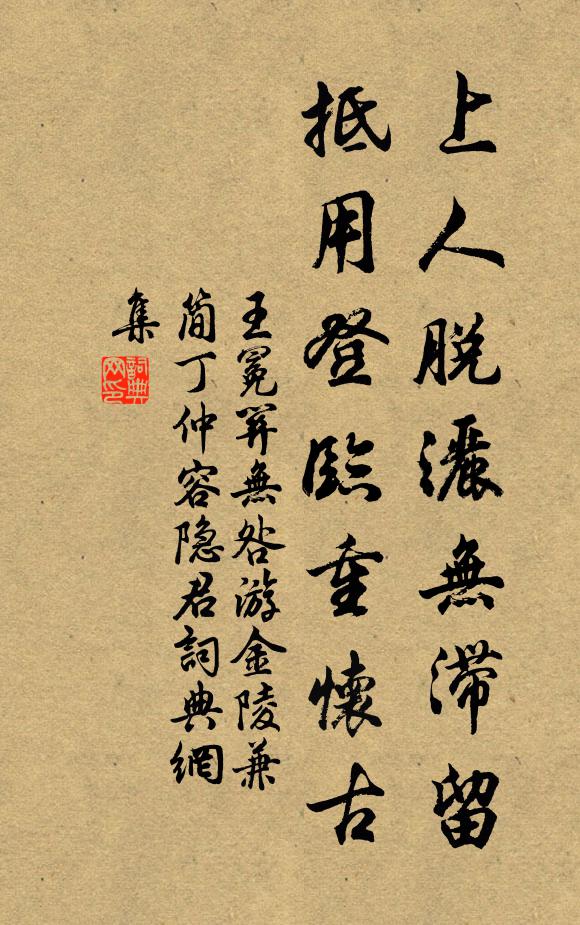 上人脱灑無滯留
抵用登臨重懷古
王冕無咎游金陵兼
简丁仲容隐君詞典網
集
詞典
网印